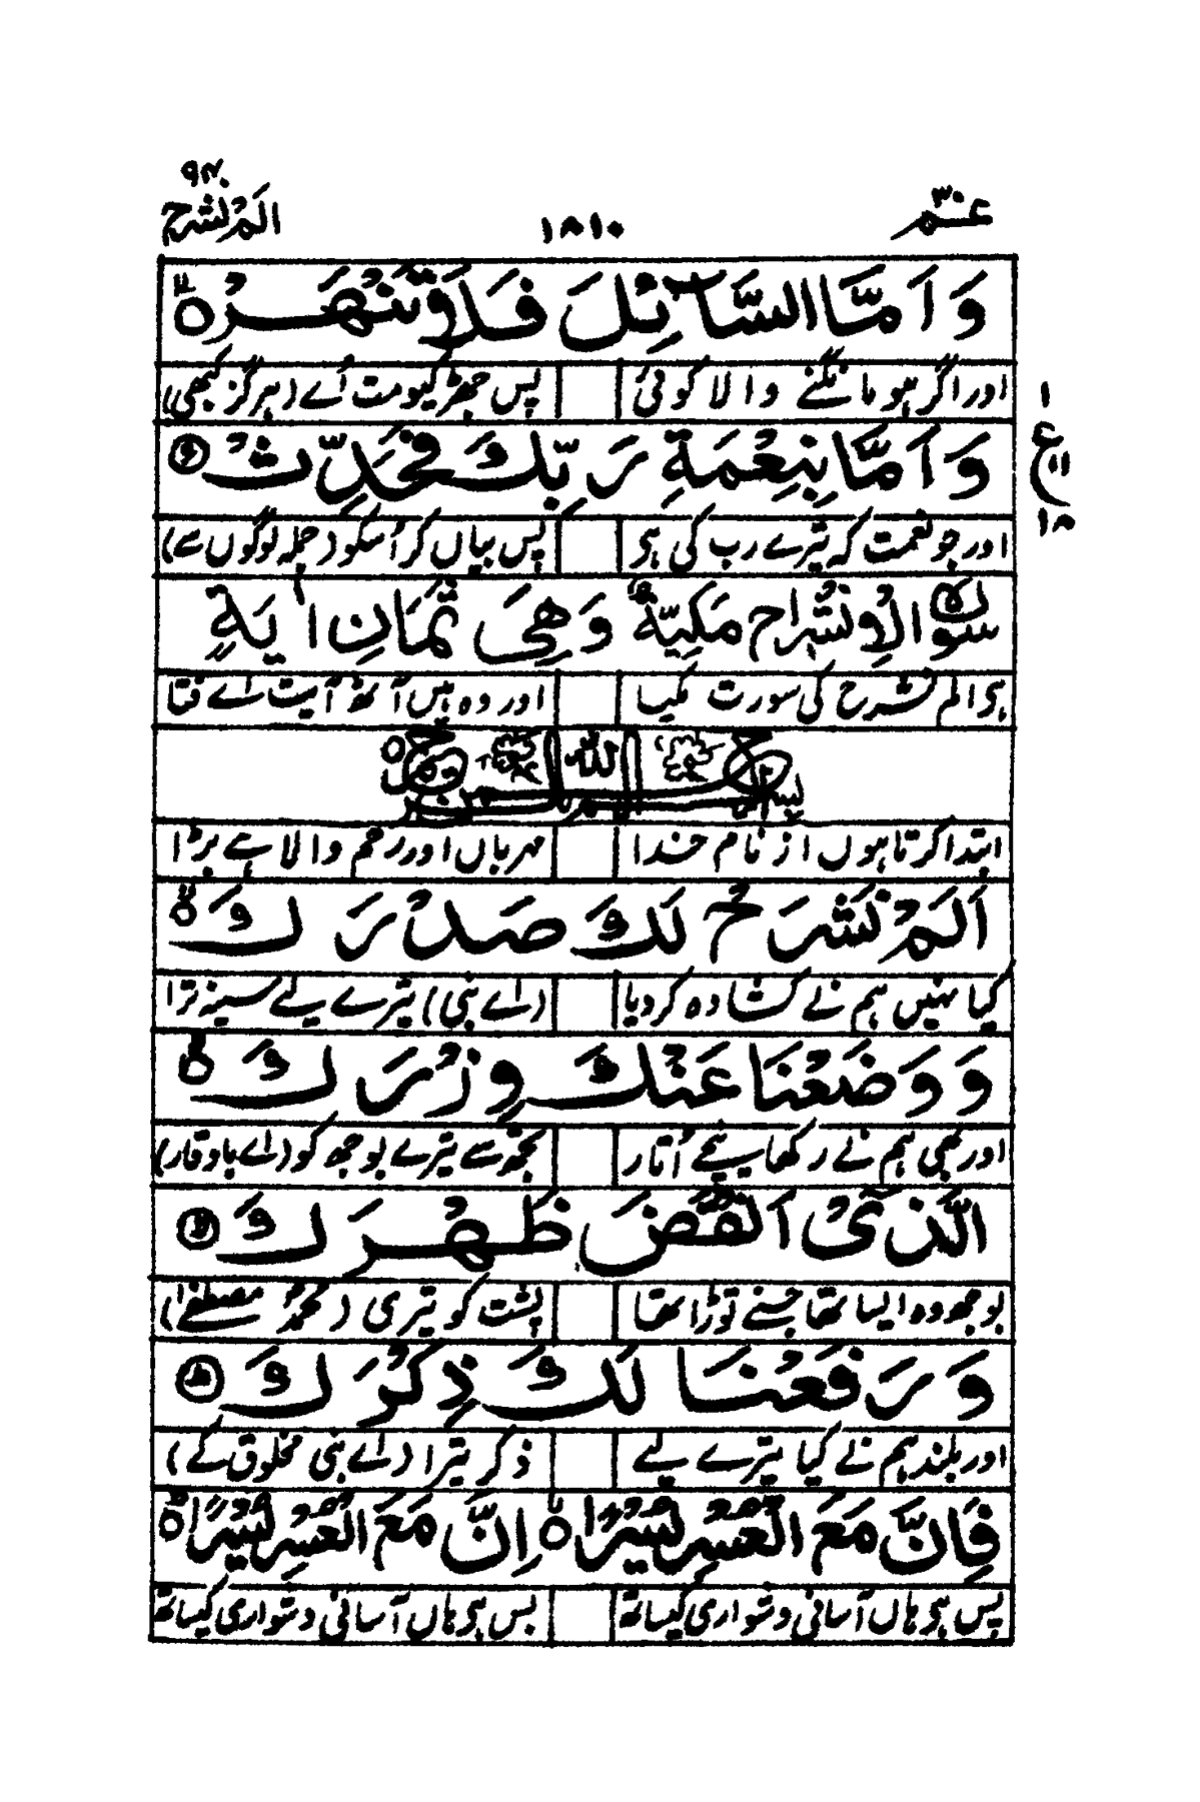 الم نشرح ٩٤
١٨١٠
عم ٣٠
وَ اَمَّا السَّآئِلَ فَلَا تَنْهَرْ ۝
اور اگر ہو مانگنے والا کوئی پس جھڑکیو مت اُسے (ہرگز کبھی)
وَ اَمَّا بِنِعْمَةِ رَبِّكَ فَحَدِّثْ ۝
اور جو نعمت کہ تیرے رب کی ہی پس بیاں کر اُسکو (جملہ لوگوں سے)
١
ع
١١
١٨
سورة الانشراح مَكِيَّةٌ وَهِيَ ثَمَانِ اٰيَةٍ
ہی الم نشرح کی سورت مکیا اور وہ ہیں آٹھ آیت اے فتا
بسم الله الرحمن الرحيم
ابتدا کرتا ہوں از نام خدا مہرباں اور رحم والا ہے بڑا
اَلَمْ نَشْرَحْ لَكَ صَدْرَكَ ۝
کیا نہیں ہم نے کشادہ کر دیا (اے نبی) تیرے لیے سینہ ترا
وَ وَضَعْنَا عَنْكَ وِزْرَكَ ۝
اور بھی ہم نے رکھا نیچے اُتار تجھ سے تیرے بوجھ کو (اے باوقار)
الَّذِىْٓ اَنْقَضَ ظَهْرَكَ ۝
بوجھ وہ ایسا تھا جسنے توڑا تھا پشت کو تیری (محمدؐ مصطفےٰ)
وَ رَفَعْنَا لَكَ ذِكْرَكَ ۝
اور بلند ہم نے کیا تیرے لیے ذکر تیرا (اے نبی مخلوق کے)
فَاِنَّ مَعَ الْعُسْرِ يُسْرًا ۝ اِنَّ مَعَ الْعُسْرِ يُسْرًا ۝
پس ہی ہاں آسانی دشواری کیساتھ بس ہی ہاں آسانی دشواری کیساتھ